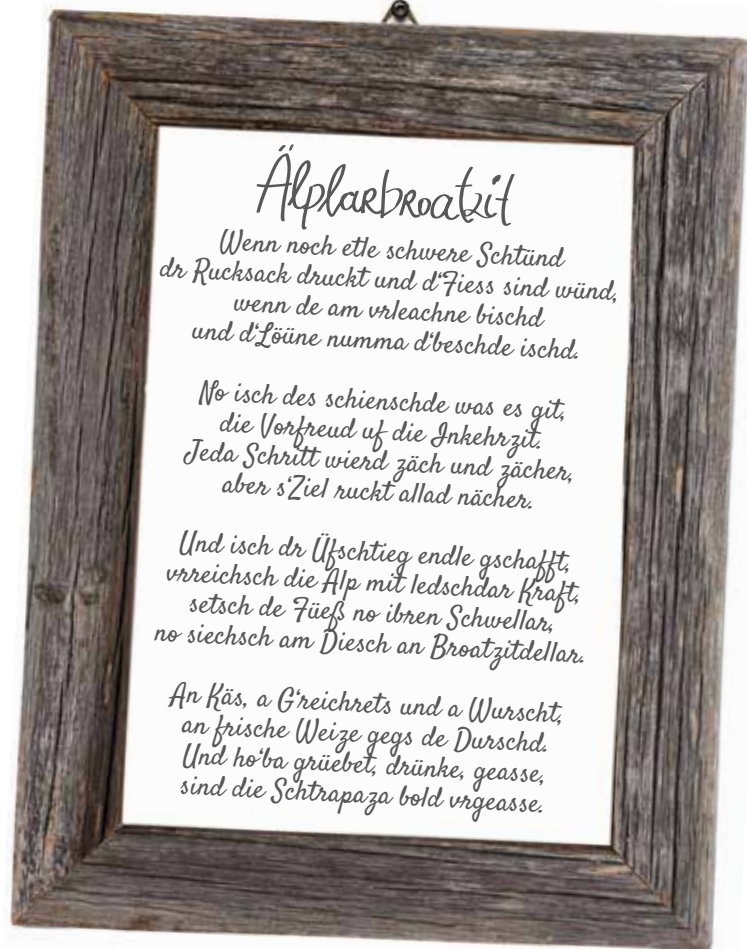 Älplarbroatzit
Wenn noch etle schwere Schtünd
dr Rucksack druckt und d'Fiess sind wünd,
wenn de am vrleachne bischd
und d'Löüne numma d'beschde ischd.
No isch des schienschde was es git,
die Vorfreud uf die Inkehrzit.
Jeda Schritt wierd zäch und zächer,
aber s'Ziel ruckt allad nächer.
Und isch dr Üfschtieg endle gschafft,
vrreichsch die Alp mit ledschdar Kraft,
setsch de Füeß no ibren Schwellar,
no siechsch am Diesch an Broatzitdellar.
An Käs, a G'reichrets und a Wurscht,
an frische Weize gegs de Durschd.
Und ho'ba grüebet, drünke, geasse,
sind die Schtrapaza bold vrgeasse.